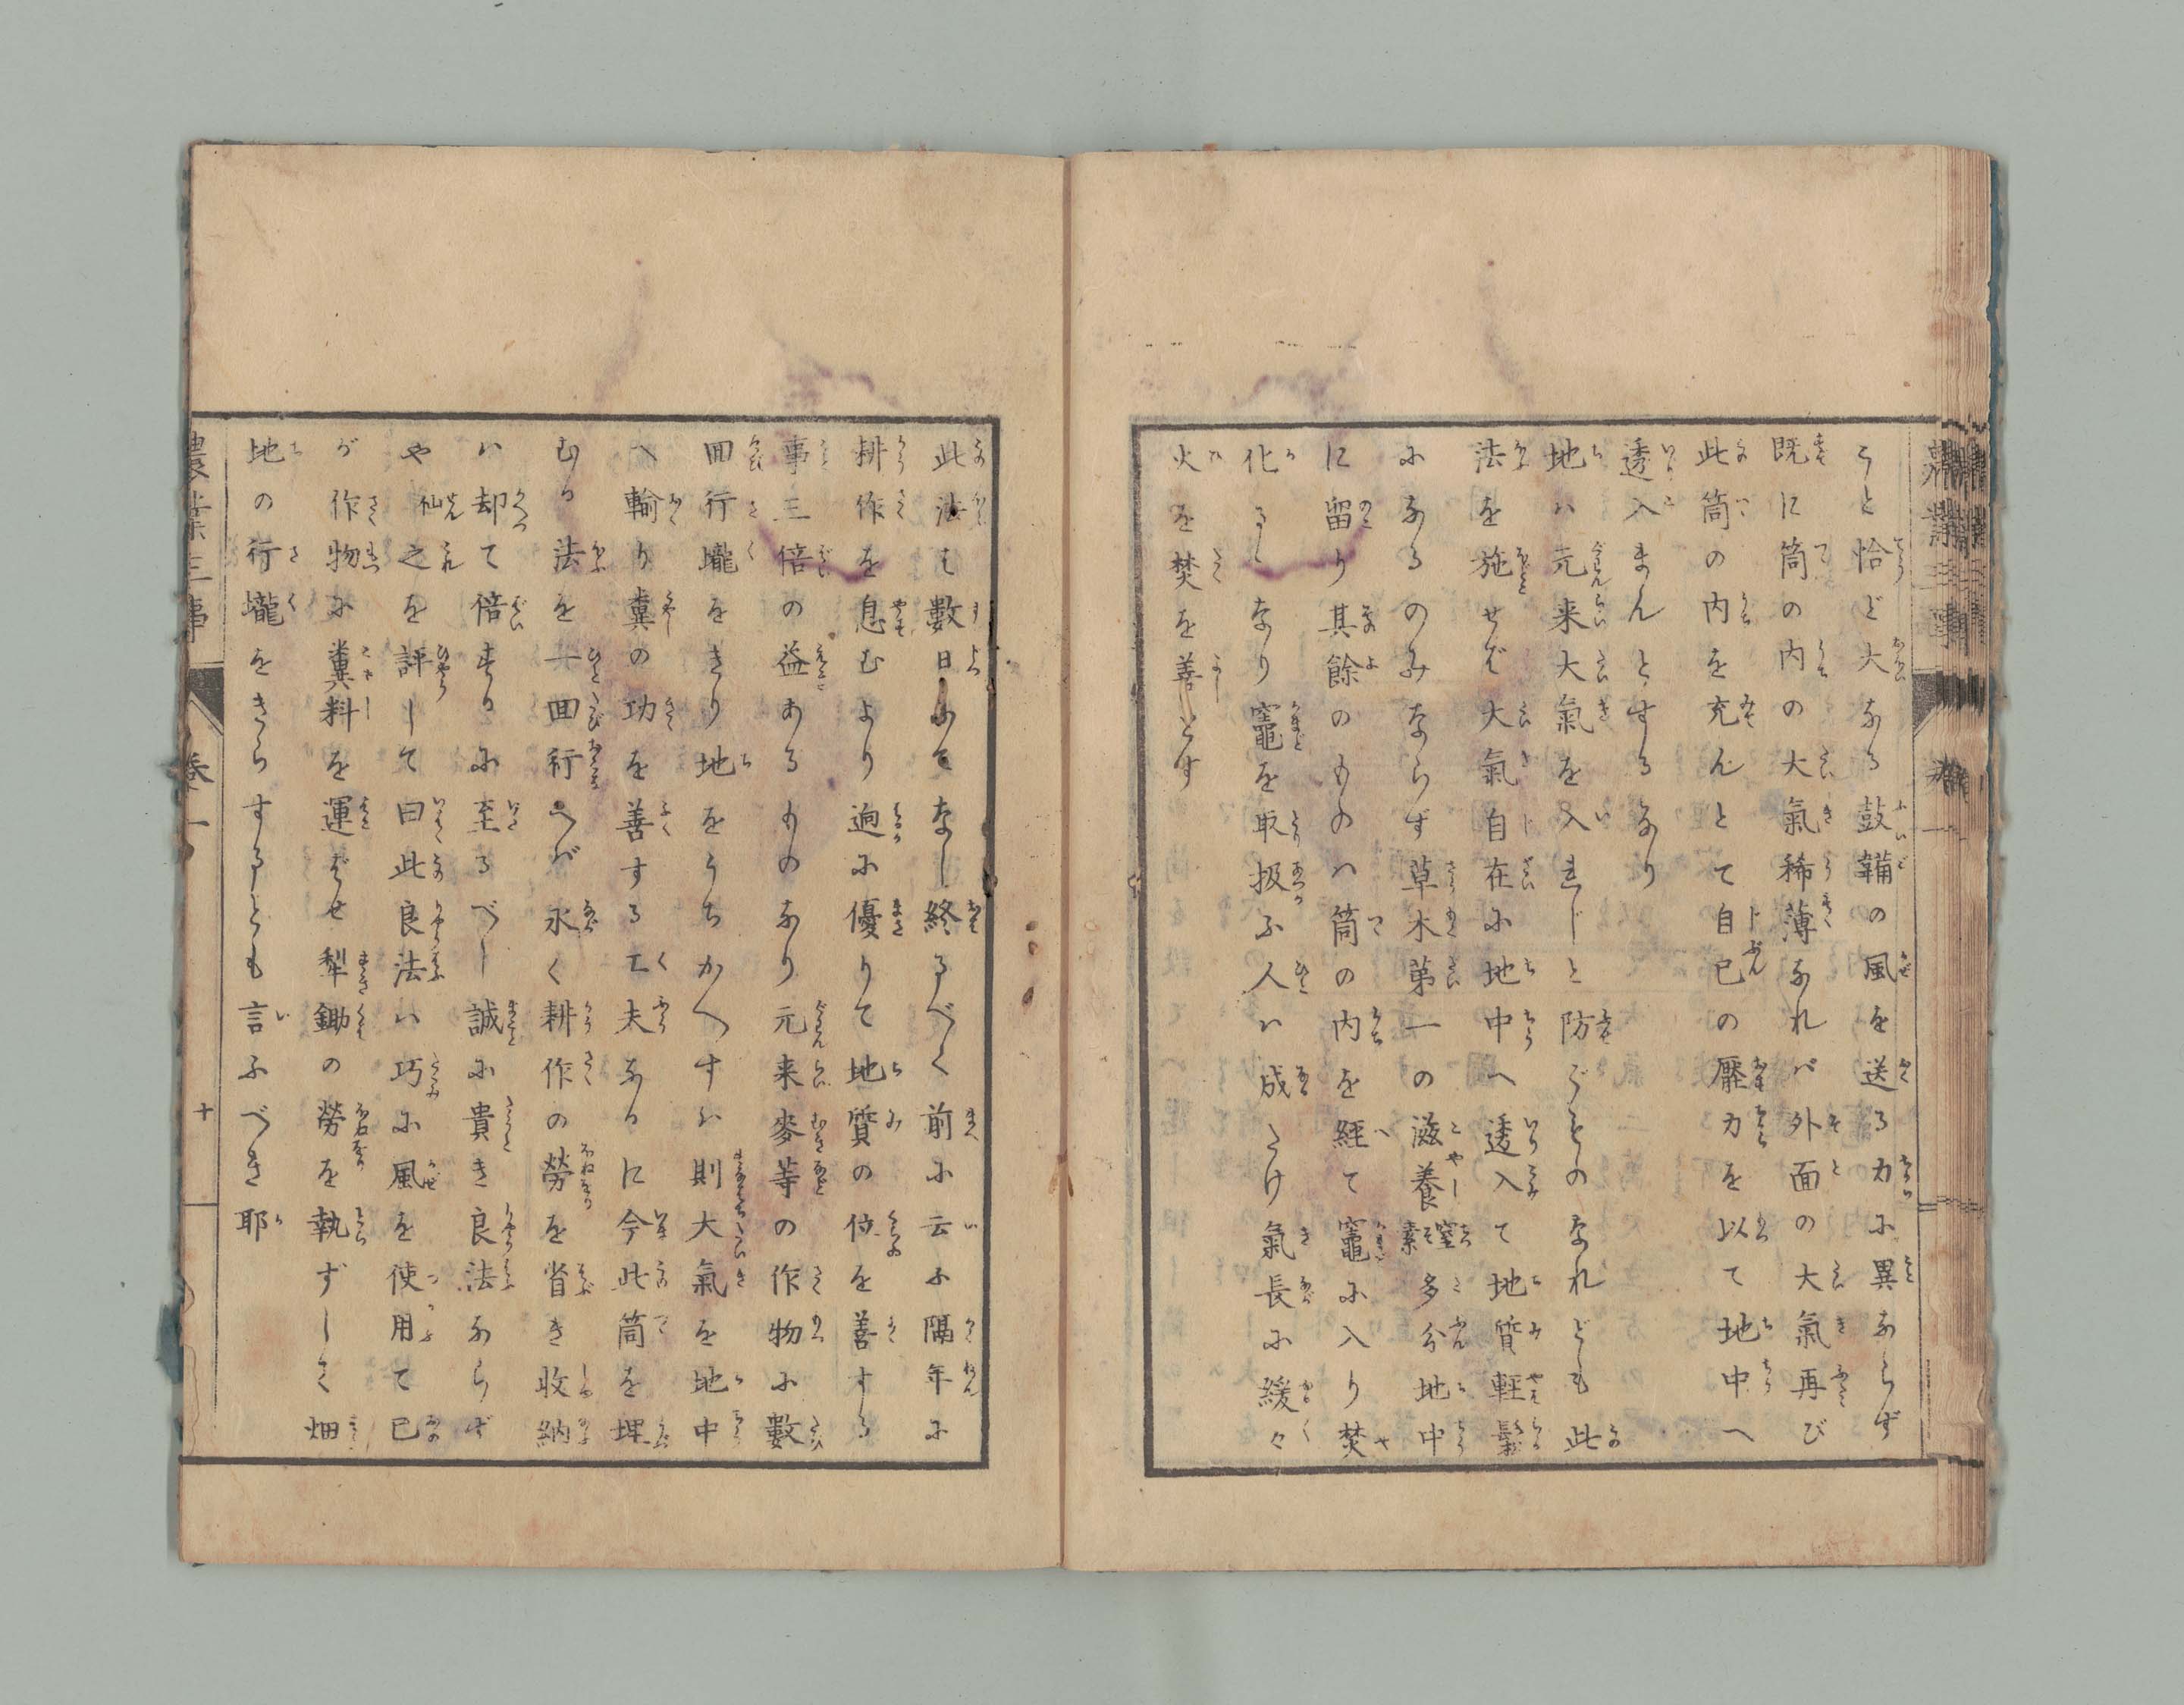 こと恰ど大なる鼓鞴の風を送る力に異ならず
既に筒の内の大氣稀薄なれバ外面の大氣再び
此筒の内を充んとて自己の壓力を以て地中へ
透入まんとするなり
地ハ元来大氣を入れじと防ぐものなれども此
法を施せバ大氣自在に地中へ透入て地質軽鬆
になるのみならず草木第一の滋養窒素多分地中
に留り其餘のものハ筒の内を経て竈に入り焚
化るゝなり竈を取扱ふ人ハ成たけ氣長に緩々
火を焚を善とす
此法は數日にてなし終るべく前に云ふ隔年に
耕作を息むより逈に優りて地質の位を善する
事三倍の益あるものなり元来麥等の作物に數
囬行壠をきり地をうちかへすハ則大氣を地中
へ輸り糞の功を善する工夫なるに今此筒を埋
むる法を一囬行へバ永く耕作の勞を省き收納
ハ却て倍するに至るべし誠に貴き良法ならず
や仙之を評して曰此良法ハ巧に風を使用て己
が作物に糞料を運ばせ犁鋤の勞を執ずして畑
地の行壠をきらするとも言ふべき耶
農業三事
卷一
十